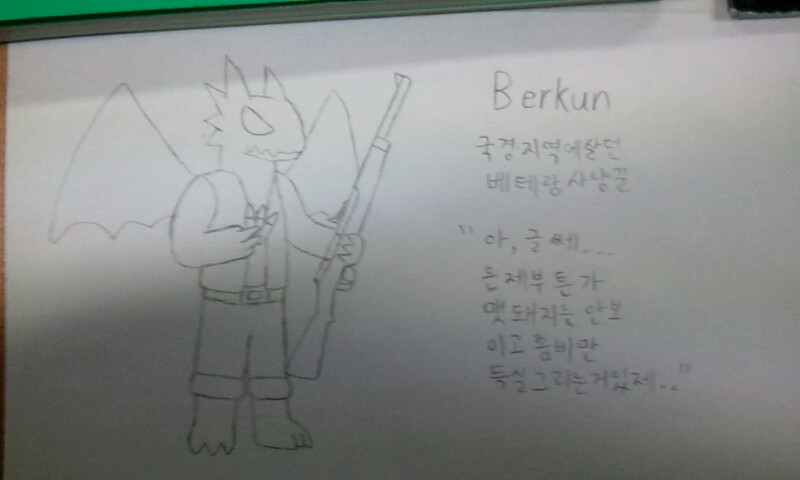 Berkun
국경지역에살던
베테랑사냥꾼
"아, 글쎄...
든제부튼가
맷돼지는안보
이고좀비만
득실그리는거있제.."